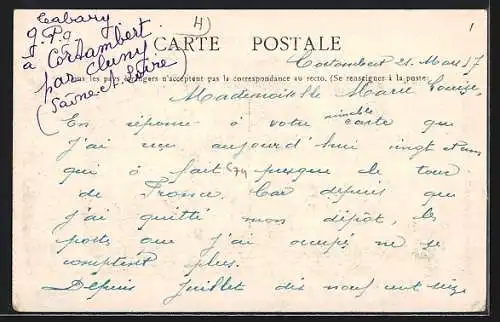 Cabary
G.P.a.
a Cortambert
par Cluny
(Saône et Loire)
H)
1
CARTE POSTALE
les pays étrangers n'acceptent pas la correspondance au recto. (Se renseigner à la poste
Cortambert 21. Mars 17
Mademoiselle Marie Louise,
En réponse à votre aimable carte que
j'ai reçu aujourd'hui vingt et un
qui à fait presque le tour
de France. Car depuis que
j'ai quitté mon dépôt, les
postes que j'ai occupés ne se
comptent plus.
Depuis Juillet dix neuf cent seize